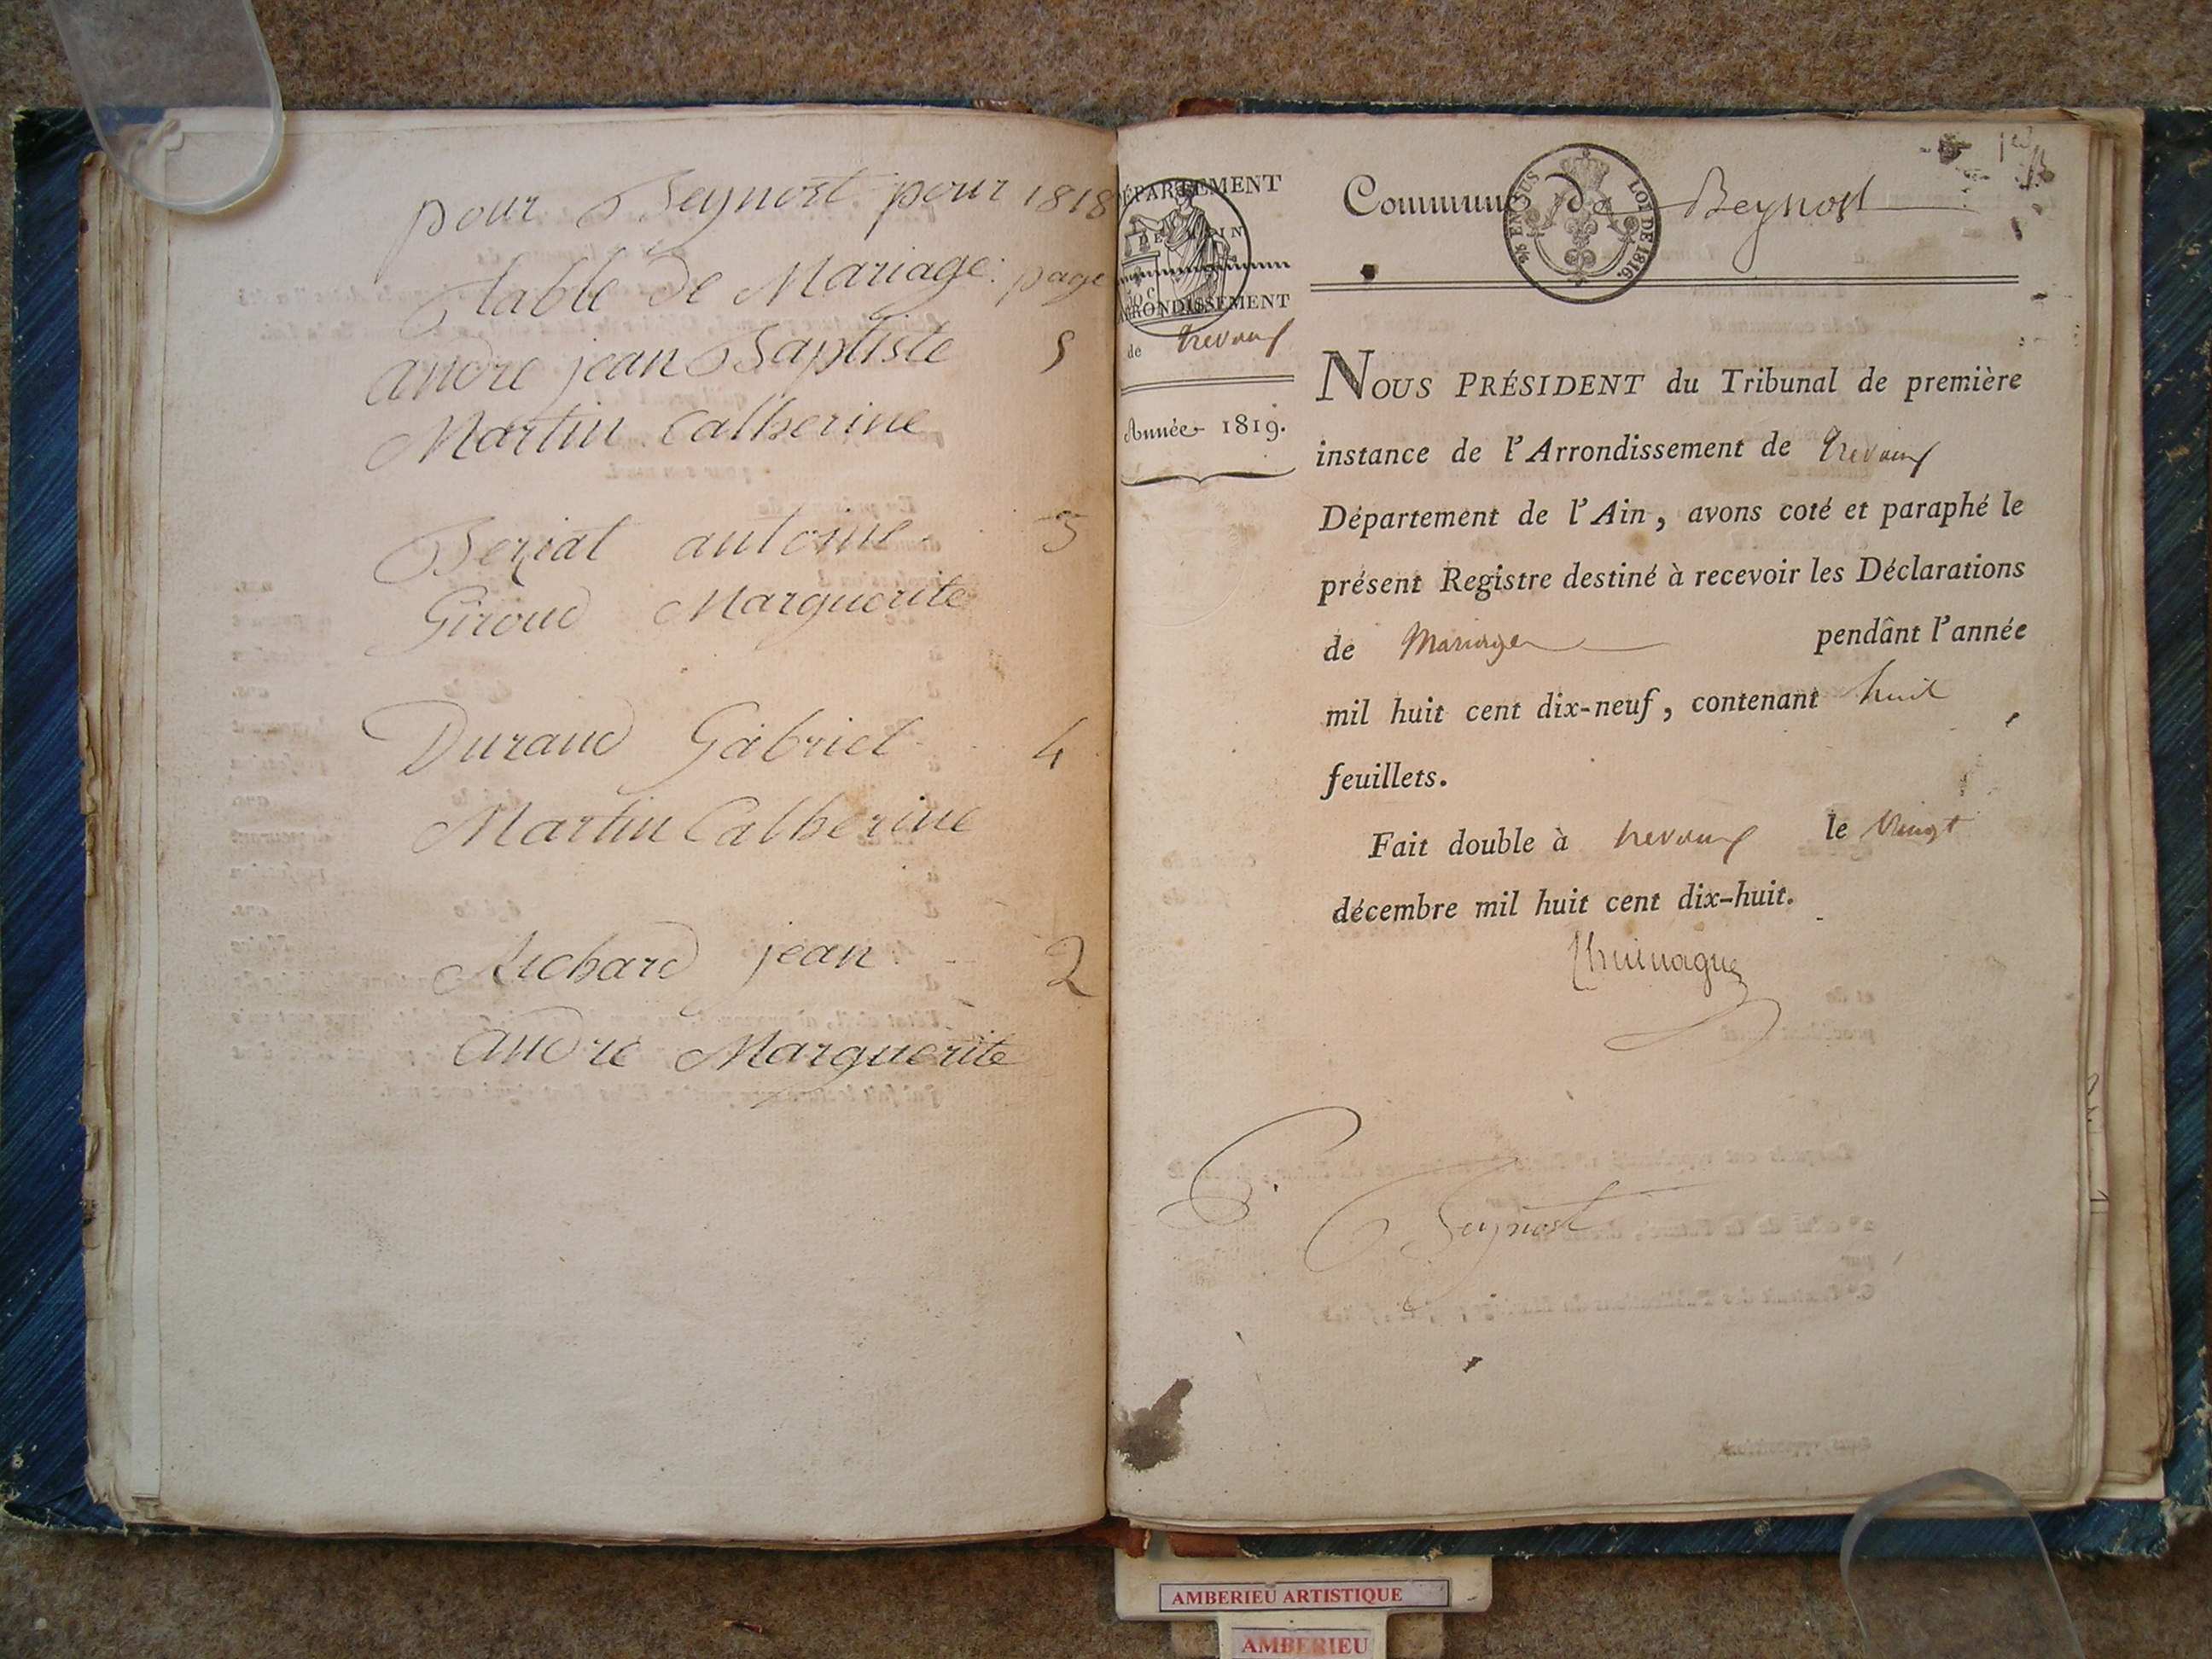 pour Beynost pour 1818
table de Mariage. page
andré jean Baptiste 5
Martin Catherine
Beziat antoine 3
Giroud Marguerite
Durand Gabriel 4
Martin Catherine
Richard jean 2
andré Marguerite
DÉPARTEMENT
DE L'AIN
30 c
ARRONDISSEMENT
de Trevoux
Année 1819.
Commune de Beynost
EN SUS
LOI DE 1816.
NOUS PRÉSIDENT du Tribunal de première
instance de l'Arrondissement de Trevoux
Département de l'Ain, avons coté et paraphé le
présent Registre destiné à recevoir les Déclarations
de Mariages pendânt l'année
mil huit cent dix-neuf, contenant huit
feuillets.
Fait double à trevoux le vingt
décembre mil huit cent dix-huit.
Beynost
AMBERIEU ARTISTIQUE
AMBERIEU